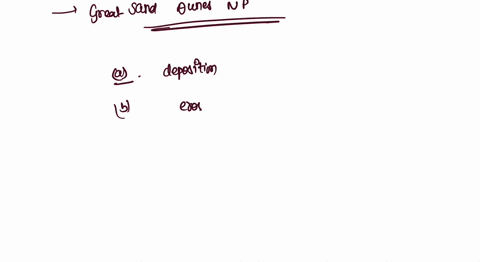 → Great Sand Dunes NP
(a). deposition
(b) eros